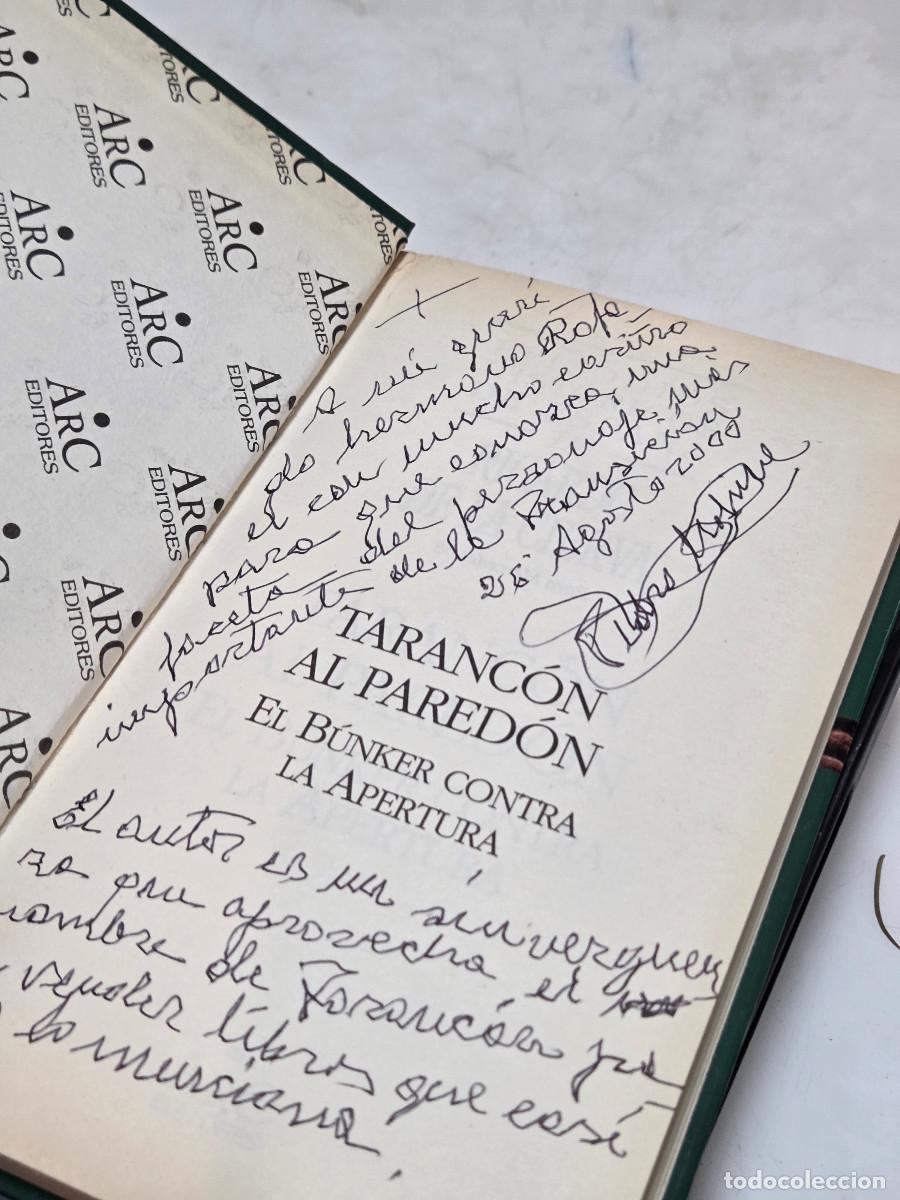 ARC
EDITORES
ARC
EDITORES
ARC
EDITORES
ARC
EDITORES
ARC
EDITORES
ARC
EDITORES
ARC
EDITORES
ARC
EDITORES
A mi queri
do hermano Rafa-
el con mucho cariño
para que conozca, una
faceta del personaje más
importante de la Transición
26 Agosto 2000
TARANCÓN
AL PAREDÓN
EL BÚNKER CONTRA
LA APERTURA
El autor es un sinverguen
za que aprovecha el
nombre de Tarancón pa
vender libros que casi
lo murciana,
todocoleccion